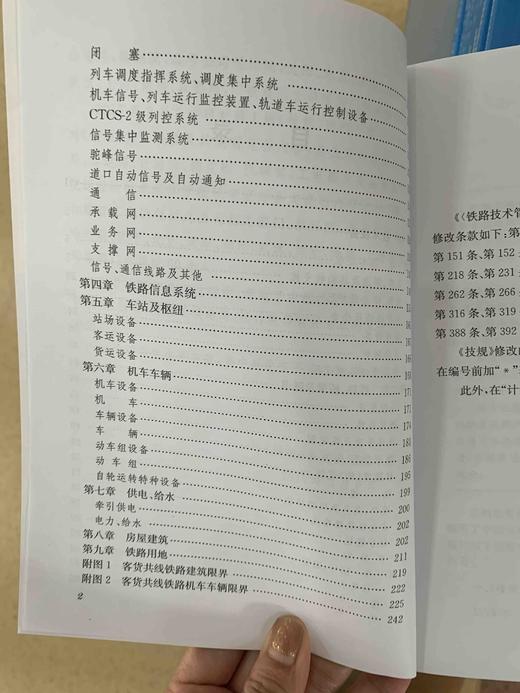 闭　塞
列车调度指挥系统、调度集中系统
机车信号、列车运行监控装置、轨道车运行控制设备
CTCS-2 级列控系统
信号集中监测系统
驼峰信号
道口自动信号及自动通知
通　信
承 载 网
业 务 网
支 撑 网
信号、通信线路及其他
第四章　铁路信息系统
第五章　车站及枢纽
站场设备
客运设备
货运设备
第六章　机车车辆 171
机车设备 171
机　车 174
车辆设备
车　辆 186
动车组设备 195
动 车 组 199
自轮运转特种设备 200
第七章　供电、给水 202
牵引供电 202
电力、给水 211
第八章　房屋建筑 219
第九章　铁路用地 222
附图 1　客货共线铁路建筑限界 225
附图 2　客货共线铁路机车车辆限界 242
2
《〈铁路技术管
修改条款如下:第
第 151 条、第 152
第 218 条、第 231
第 262 条、第 266
第 316 条、第 319
第 388 条、第 392
《技规》修改
在编号前加“*”
此外,在“计